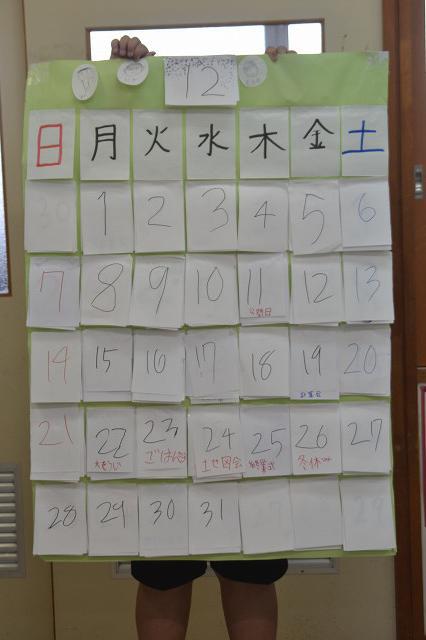 12
日 月 火 水 木 金 土
1 2 3 4 5 6
7 8 9 10 11 12 13
14 15 16 17 18 19 20
21 22 23 24 25 26 27
大そうじ 終業式 冬休
28 29 30 31